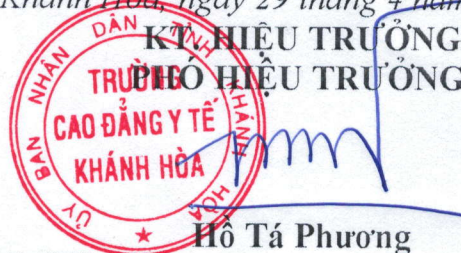 Khánh Hòa, ngày 29 tháng 4 năm
KT. HIỆU TRƯỞNG
PHÓ HIỆU TRƯỞNG
ỦY BAN NHÂN DÂN TỈNH KHÁNH HÒA
TRƯỜNG
CAO ĐẲNG Y TẾ
KHÁNH HÒA
Hồ Tá Phương